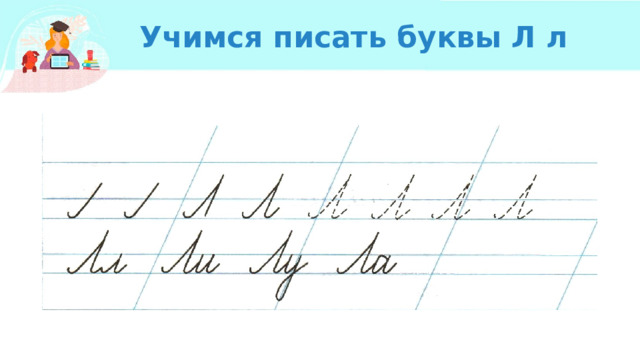 Учимся писать буквы Л л
Л Л Л Л Л Л
Лл Ли Лу Ла